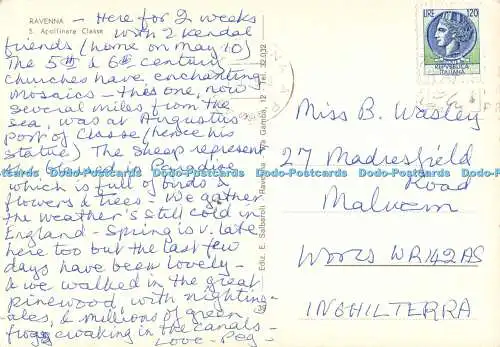 RAVENNA
S. Apollinare Classe
- Here for 2 weeks
with 2 Kendal
friends (home on May 10)
The 5th & 6th century
churches have enchanting
mosaics - this one, now
several miles from the
sea, was at Augustus'
port of Classe (hence his
statue) The sheep represent
in Paradise
which is full of birds &
flowers & trees - We gather
the weather's still cold in
England - Spring is v. late
here too but the last few
days have been lovely -
& we walked in the great
pinewood, with nighting-
ales, & millions of green
frogs croaking in the canals -
Love - Peg -
Ediz. E. Salbaroli - Ravenna - Via Gamba, 12 - Tel. 32.032
LIRE 120
REPVBBLICA
ITALIANA
Miss B. Wasley
27 Madresfield
Road
Malvern
WORCS WR14 2AS
INGHILTERRA
Dodo-Postcards Dodo-Postcards Dodo-Postcards Dodo-Postcards